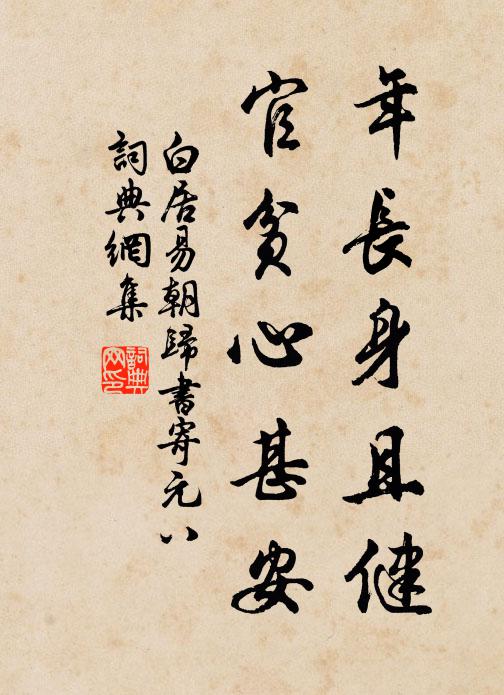 年長身且健
官貧心甚安
白居易朝歸書寄元八
詞典網集
詞典
网印